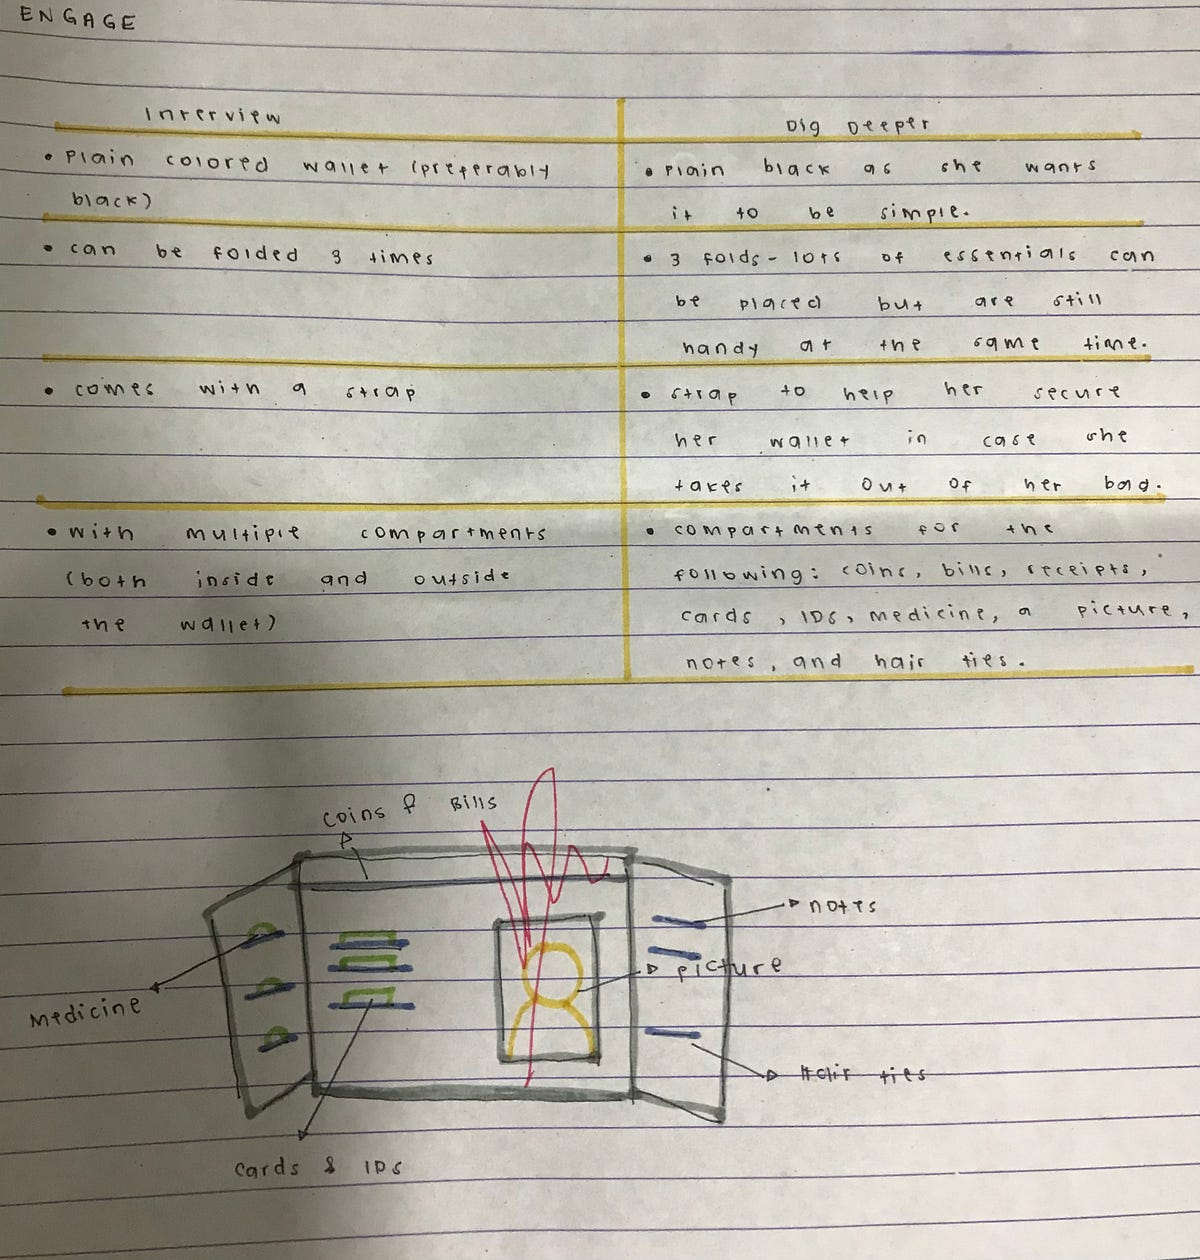 ENGAGE
Interview
Dig Deeper
• Plain colored wallet (preferably
black)
• Plain black as she wants
it to be simple.
• can be folded 3 times
• 3 folds - lots of essentials can
be placed but are still
handy at the same time.
• comes with a strap
• strap to help her secure
her wallet in case she
takes it out of her bag.
• with multiple compartments
(both inside and outside
the wallet)
• compartments for the
following: coins, bills, receipts,
cards, IDs, medicine, a picture,
notes, and hair ties.
Coins & Bills
notes
Picture
Medicine
Hair ties
Cards & IDs